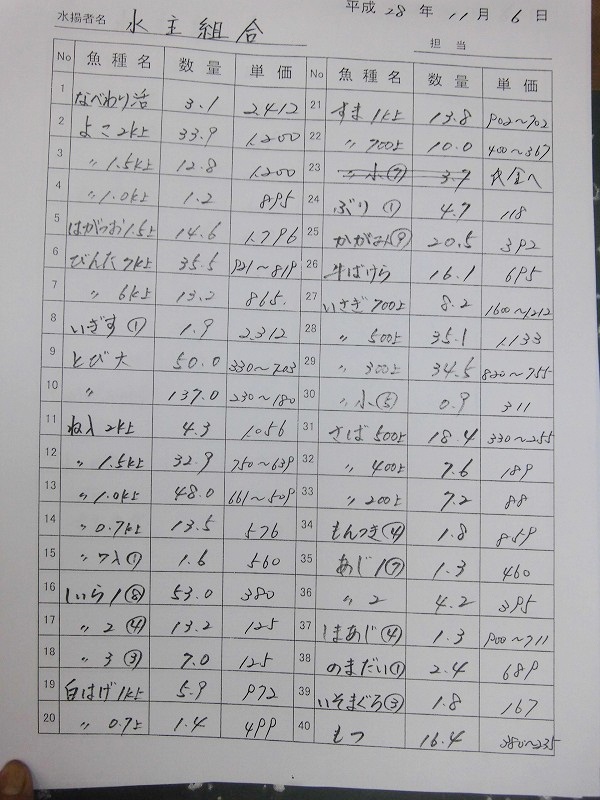 平成 28 年 11 月 6 日
水揚者名 水主組合
担当
No 魚種名 数量 単価
1 なべわり活 3.1 2412
2 よこ2k上 33.9 1,200
3 〃1.5k上 12.8 1,200
4 〃1.0k上 1.2 895
5 はがつお1.5上 14.6 1,796
6 びんた7k上 35.5 921〜819
7 〃 6k上 13.2 865.
8 いぎす① 1.9 2312
9 とび大 50.0 330〜203
10 〃 137.0 230〜180
11 ねり 2k上 4.3 1,056
12 〃1.5k上 32.9 750〜639
13 〃1.0k上 48.0 661〜509
14 〃0.7k上 13.5 576
15 〃 ワリ① 1.6 560
16 しいら1⑧ 53.0 380
17 〃 2④ 13.2 125
18 〃 3③ 7.0 125
19 白はげ1k上 5.9 972
20 〃 0.7上 1.4 499
No 魚種名 数量 単価
21 すま1k上 13.8 902〜702
22 〃700上 10.0 400〜367
23 〃小⑦ 3.7
24 ぶり① 4.7 118
25 かがみ⑨ 20.5 392
26 牛ばけら 16.1 695
27 いさぎ700上 8.2 1600〜1212
28 〃 500上 35.1 1,133
29 〃 300上 34.5 820〜755
30 〃小⑤ 0.9 311
31 さば500上 18.4 330〜255
32 〃 400上 7.6 189
33 〃 200上 7.2 88
34 もんつき④ 1.8 859
35 あじ1⑦ 1.3 460
36 〃 2 4.2 395
37 しまあじ④ 1.3 900〜711
38 のまだい① 2.4 689
39 いそまぐろ③ 1.8 167
40 もつ 16.4 380〜235